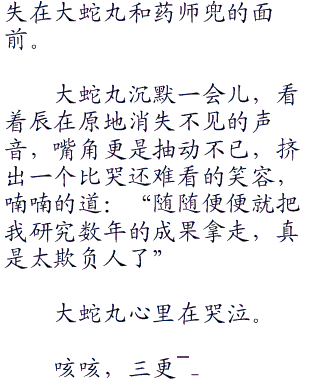 失在大蛇丸和药师兜的面
前。
大蛇丸沉默一会儿，看
着辰在原地消失不见的声
音，嘴角更是抽动不已，挤
出一个比哭还难看的笑容，
喃喃的道：“随随便便就把
我研究数年的成果拿走，真
是太欺负人了”
大蛇丸心里在哭泣。
咳咳，三更￣_